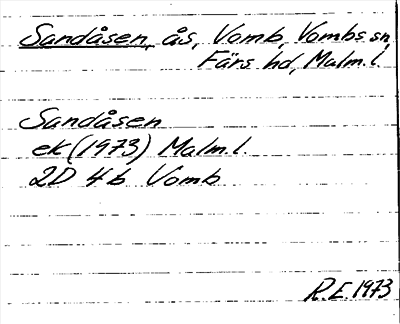 Sandåsen, ås, Vomb, Vombs sn,
Färs hd, Malm.l.
Sandåsen
ek (1973) Malm.l.
2D 4b Vomb
R.E. 1973